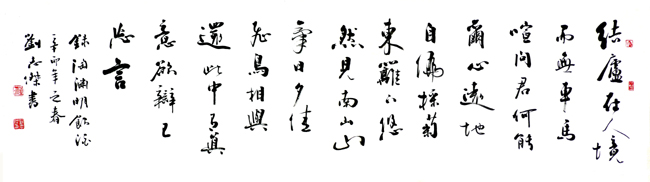 結廬在人境
而無車馬
喧問君何能
爾心遠地
自偏採菊
東籬下悠
然見南山山
氣日夕佳
飛鳥相與
還此中有真
意欲辯已
忘言
錄陶淵明飲酒
辛卯年之春
劉志傑書